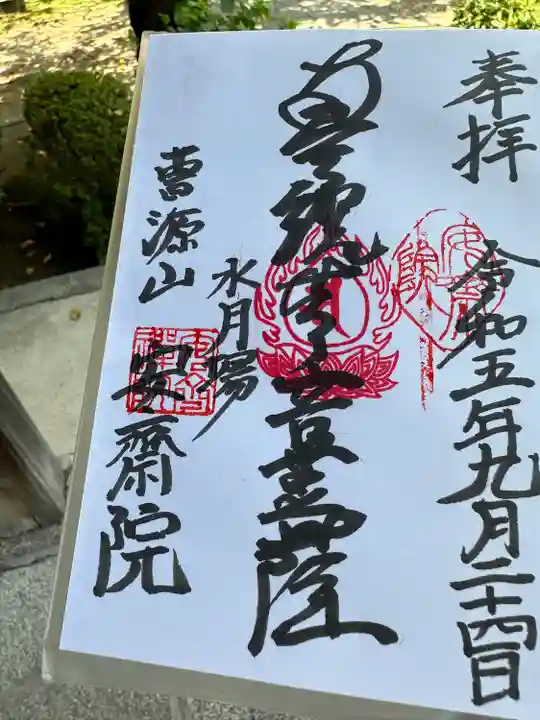 奉拝
令和五年九月二十四日
南無観世音菩薩
水月場
曹源山
安齋院